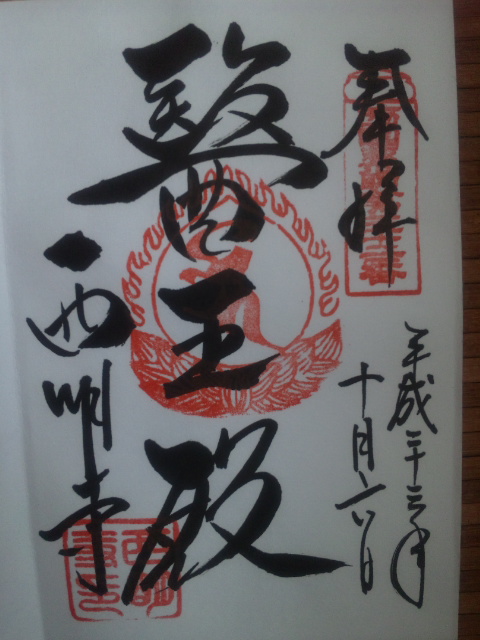 奉拝
平成二十三年
十月六日
醫王殿
西明寺